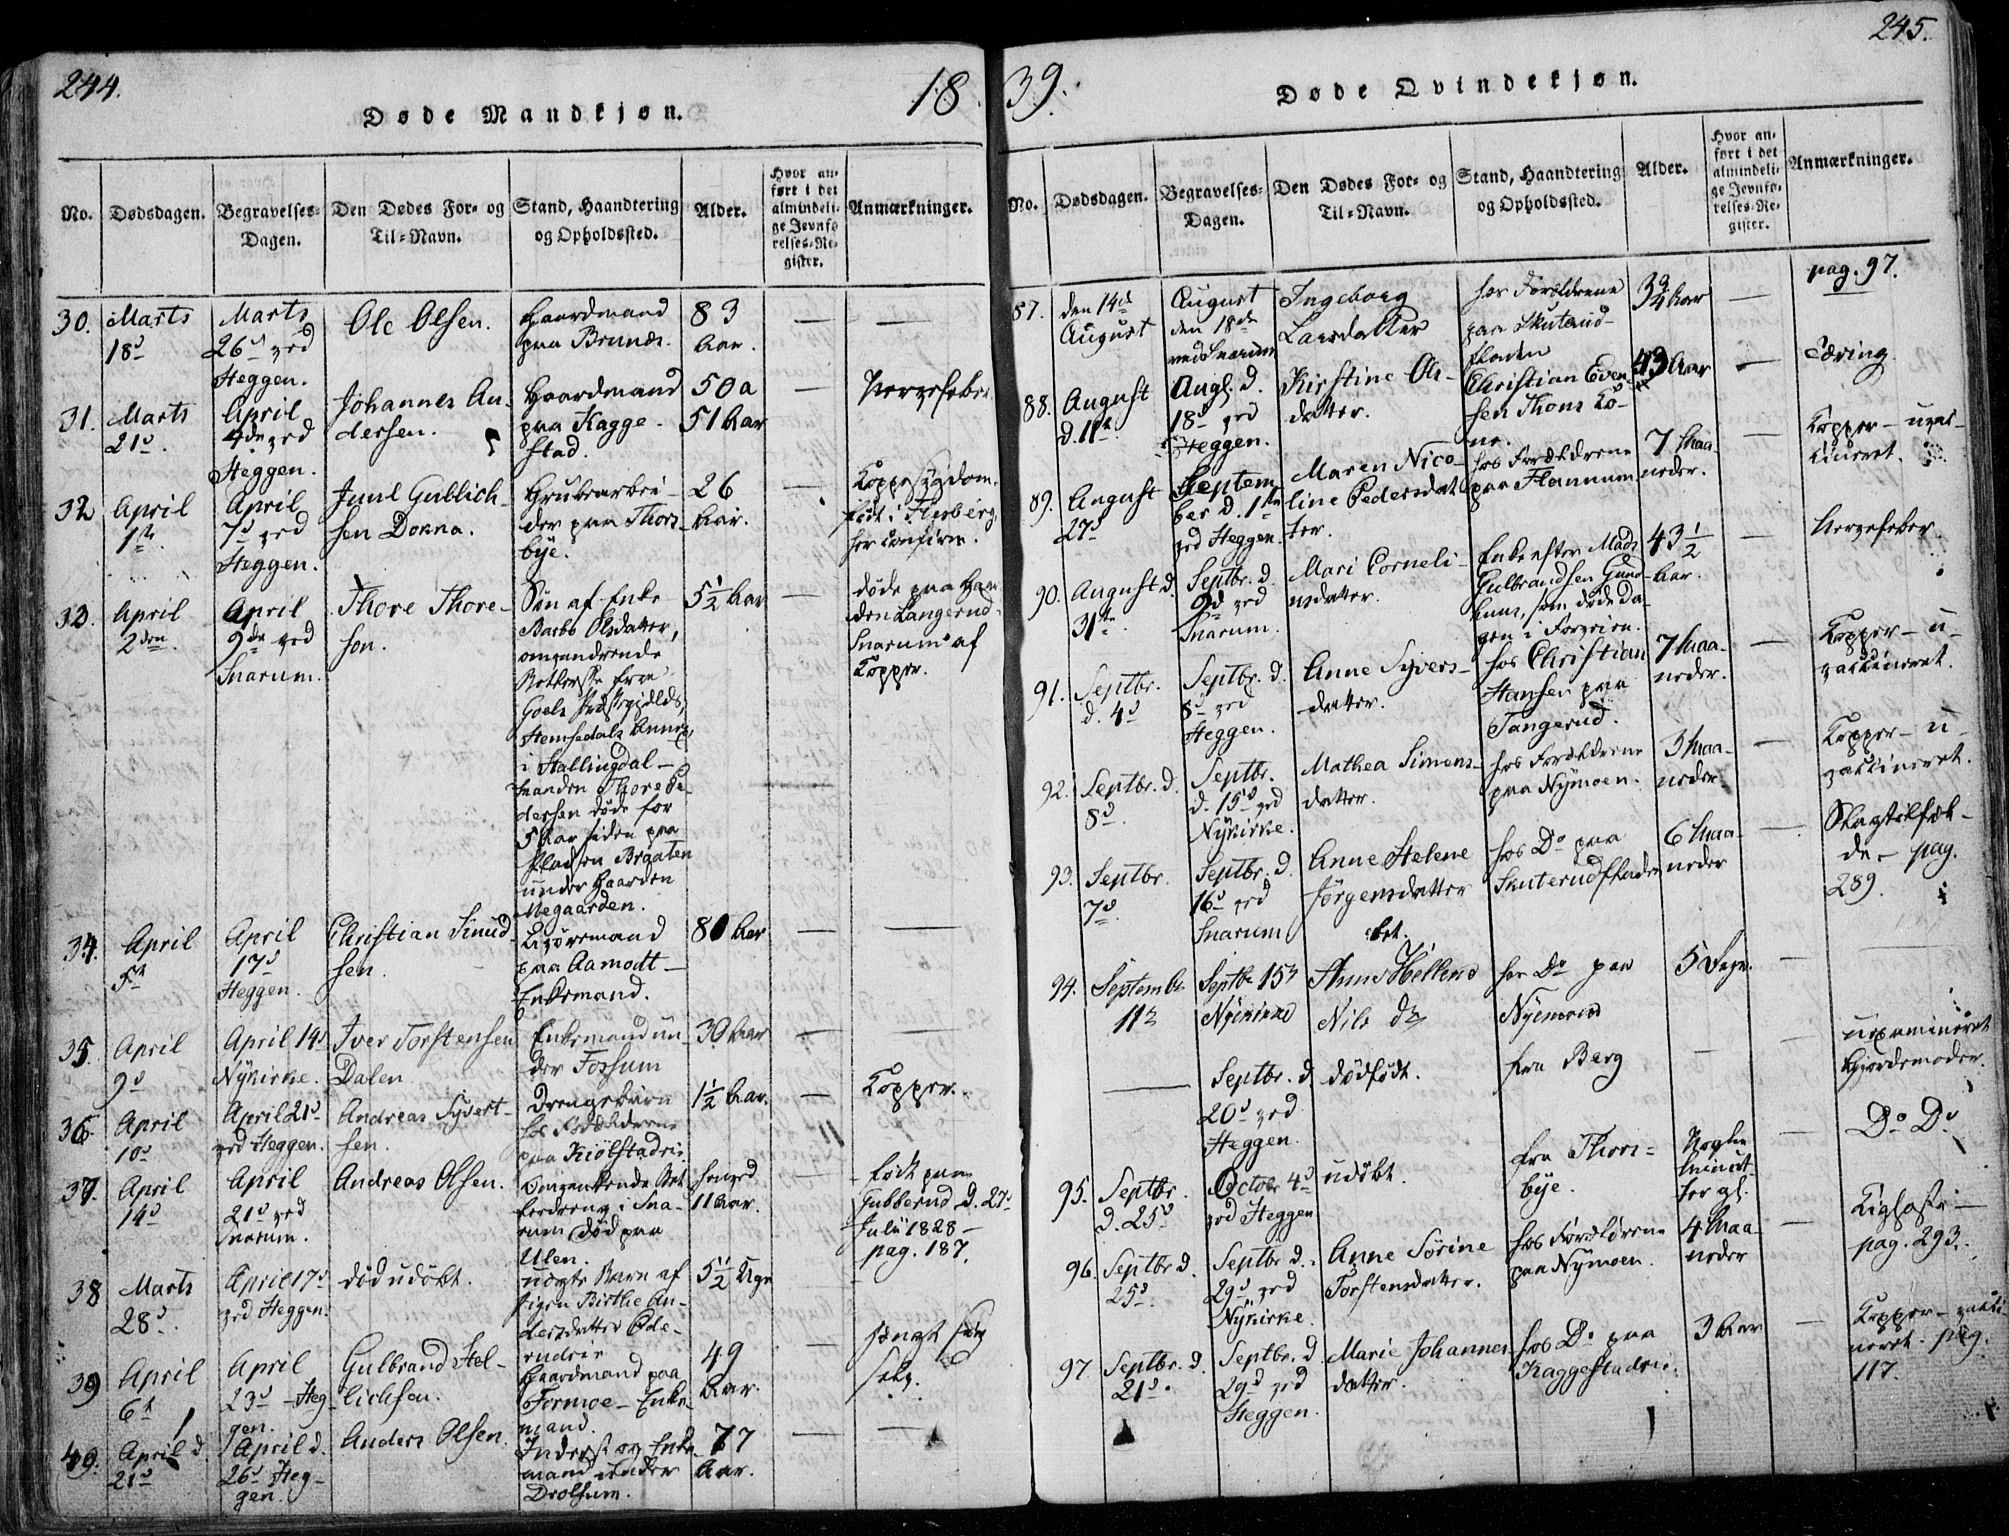 244.
18
Døde Mandkjøn.
No.
Dødsdagen.
Begravelses-
Dagen.
Den Dødes For- og
Til-Navn.
Stand, Haandtering
og Opholdssted.
Alder.
Hvor an-
ført i det
almindeli-
ge Jevnfø-
relses-Re-
gister.
Anmærkninger.
30.
Marts
18d
Marts
26d ved
Heggen.
Ole Olsen.
Gaardmand
paa Brunæs.
83
Aar.
31.
Marts
21d.
April
4de ved
Heggen.
Johannes An-
dersen.
Gaardmand
paa Kagge-
stad.
50 a
51 Aar
Nervefeber
32
April
1te
April
7d ved
Heggen.
Juul Gublich-
sen Dokna.
Grubearbei-
der paa Thors-
bye.
26
Aar.
født i
her confirm.
33.
April
2den
April
9de ved
Snarum.
Thore Thore-
sen.
Søn af Enke
Barbo Olsdatter,
omvandrende
fra
Goels Præstegjelds,
Hemsedals Annex,
i Hallingdal –
Manden Thore Pe-
dersen døde for
5 Aar siden paa
Pladsen Braaten
under Gaarden
Megaarden.
5 1/2 Aar
døde paa Gaar-
den Langerud
Snarum af
Kopper.
34.
April
5t
April
17d
Heggen.
Christian Knud-
sen.
paa Aamodt –
Enkemand.
80 Aar
35.
April
9d
April 14d
Nykirke.
Iver Torstensen
Dalen
Enkemand un-
der Fossum
30 Aar
36
April
10d
April 21d
ved Heggen.
Andreas Syvert-
sen.
Drengebarn
hos Forældrene
paa Kiølstadeie.
1 1/2 Aar.
Kopper.
37.
April
14d
April
21d ved
Snarum.
Andreas Olsen.
i Sna-
rum død paa
Ulen.
henved
11 Aar.
født paa
Gubberud d. 27d
Juli 1828 –
pag. 187.
38
Marts
28d.
April 17d
ved Heggen.
død udøbt.
uægte Barn af
Pigen Birthe An-
dersdatter Ode-
rudeie
5 1/2 Uge
39
April
6t
April
23d – Heg-
gen.
Gulbrand Hel-
lichsen.
Gaardmand paa
Formoe – Enke-
mand.
49
Aar.
hængt sig
selv.
40.
April d.
21d
April d.
26d Heg-
gen.
Anders Olsen.
Inderst og Enke-
mand under
Drolsum.
77
Aar.
245.
39.
Døde Qvindekjøn.
No.
Dødsdagen.
Begravelses-
Dagen.
Den Dødes For- og
Til-Navn.
Stand, Haandtering
og Opholdssted.
Alder.
Hvor an-
ført i det
almindeli-
ge Jevnfø-
relses-Re-
gister.
Anmærkninger.
87.
den 14de
August
August
den 18de
ved Snarum
Ingeborg
Larsdatter
hos Forældrene
paa Skuterud-
fladen
3 3/4 Aar
pag. 97.
88.
August
d. 11te
Augs. d.
18d ved
Heggen.
Kirstine Ols-
datter.
Christian Even-
sen Thons Ko-
ne.
43 Aar
Tæring.
89.
August
27d
Septem-
ber d. 1te
ved Heggen.
Maren Nico-
line Pedersdat-
ter.
hos Forældrene
paa Flannum
7 Maa-
neder.
Kopper – uvac-
cineret.
90.
August d.
31te
Septbr. d.
9d ved
Snarum.
Mari Corneli-
usdatter.
Enke efter Mads
Gulbrandsen Gund-
huus, som døde Da-
gen i Forveien.
43 1/2
Aar.
Nervefeber.
91.
Septbr.
d. 4d
Septbr. d.
8d ved
Heggen.
Anne Syvers-
datter.
hos Christian
Hansen paa
Tangerud.
7 Maa-
neder.
Kopper – u-
vaccineret.
92.
Septbr. d.
8d.
Septbr.
d. 15d ved
Nykirke.
Mathea Simens-
datter.
hos Forældrene
paa Nymoen.
3 Maa-
neder
Kopper – u-
vaccineret.
93.
Septbr.
7d.
Septbr. d.
16d ved
Snarum
Anne Helene
Jørgensdatter
hos Do paa
Skuterudfladen
6 Maa-
neder
Slagtilfæl-
de – pag.
289.
94.
Septembr
11te
Septbr 15de
Nykirke
Anne Hellene
Nils dr
hos Do paa
Nyemoen
5 Dage.
Septbr. d.
20d ved
Heggen.
dødfødt.
fra Berg
uexamineret
Gjordemoder.
95.
Septbr.
d. 25d
Octobr 4d
ved Heggen
udøbt.
fra Thors-
bye.
Nogle
Minut-
ter gl.
Do Do
96.
Septbr d.
25d.
Septbr d.
29d ved
Nykirke.
Anne Sørine
Torstensdatter.
hos Forældrene
paa Nymoen.
4 Maa-
neder
Kighoste –
pag. 293.
97.
Septbr. d.
21d.
Septbr. d
29d ved
Heggen.
Marie Johannes-
datter.
hos Do paa
Kaggestadeie.
3 Aar
Kopper – vacci-
neret – pag.
117.